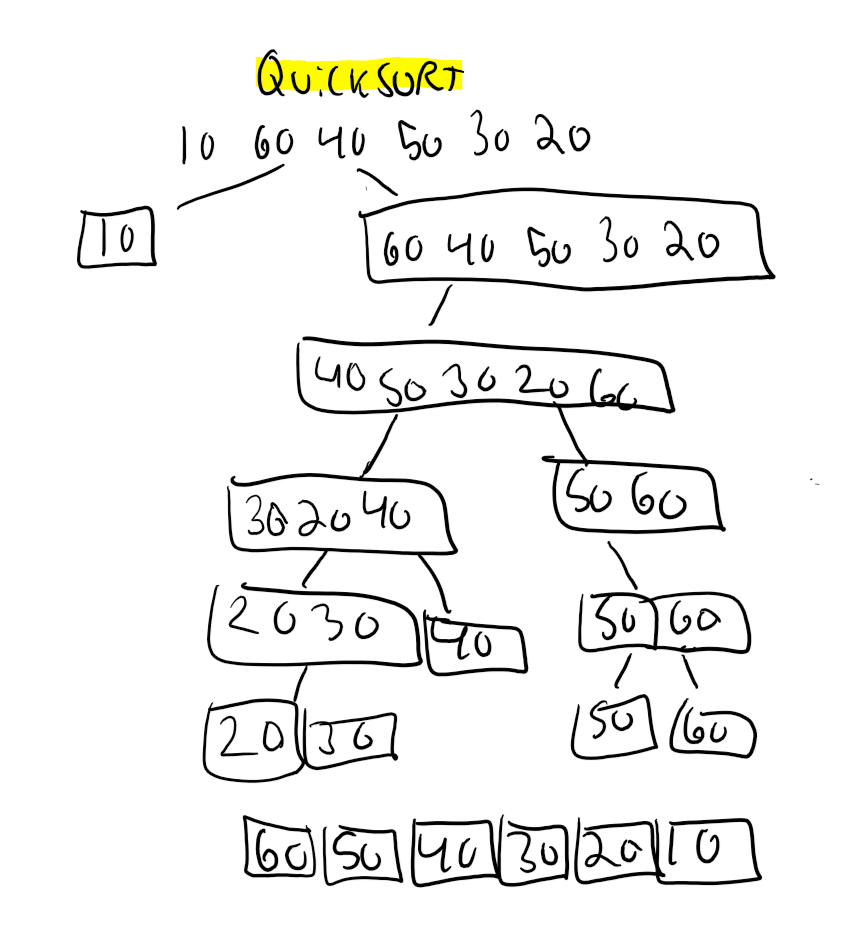 QUICKSORT
10 60 40 50 30 20
10 60 40 50 30 20
40 50 30 20 60
30 20 40 50 60
20 30 40 50 60
20 30 50 60
60 50 40 30 20 10